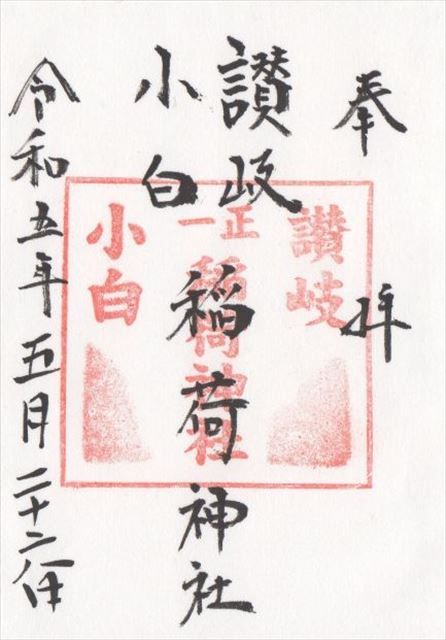 奉拝
讃岐
小白
稲荷神社
令和五年五月二十二日
讃岐
正一
稲荷神社
小白